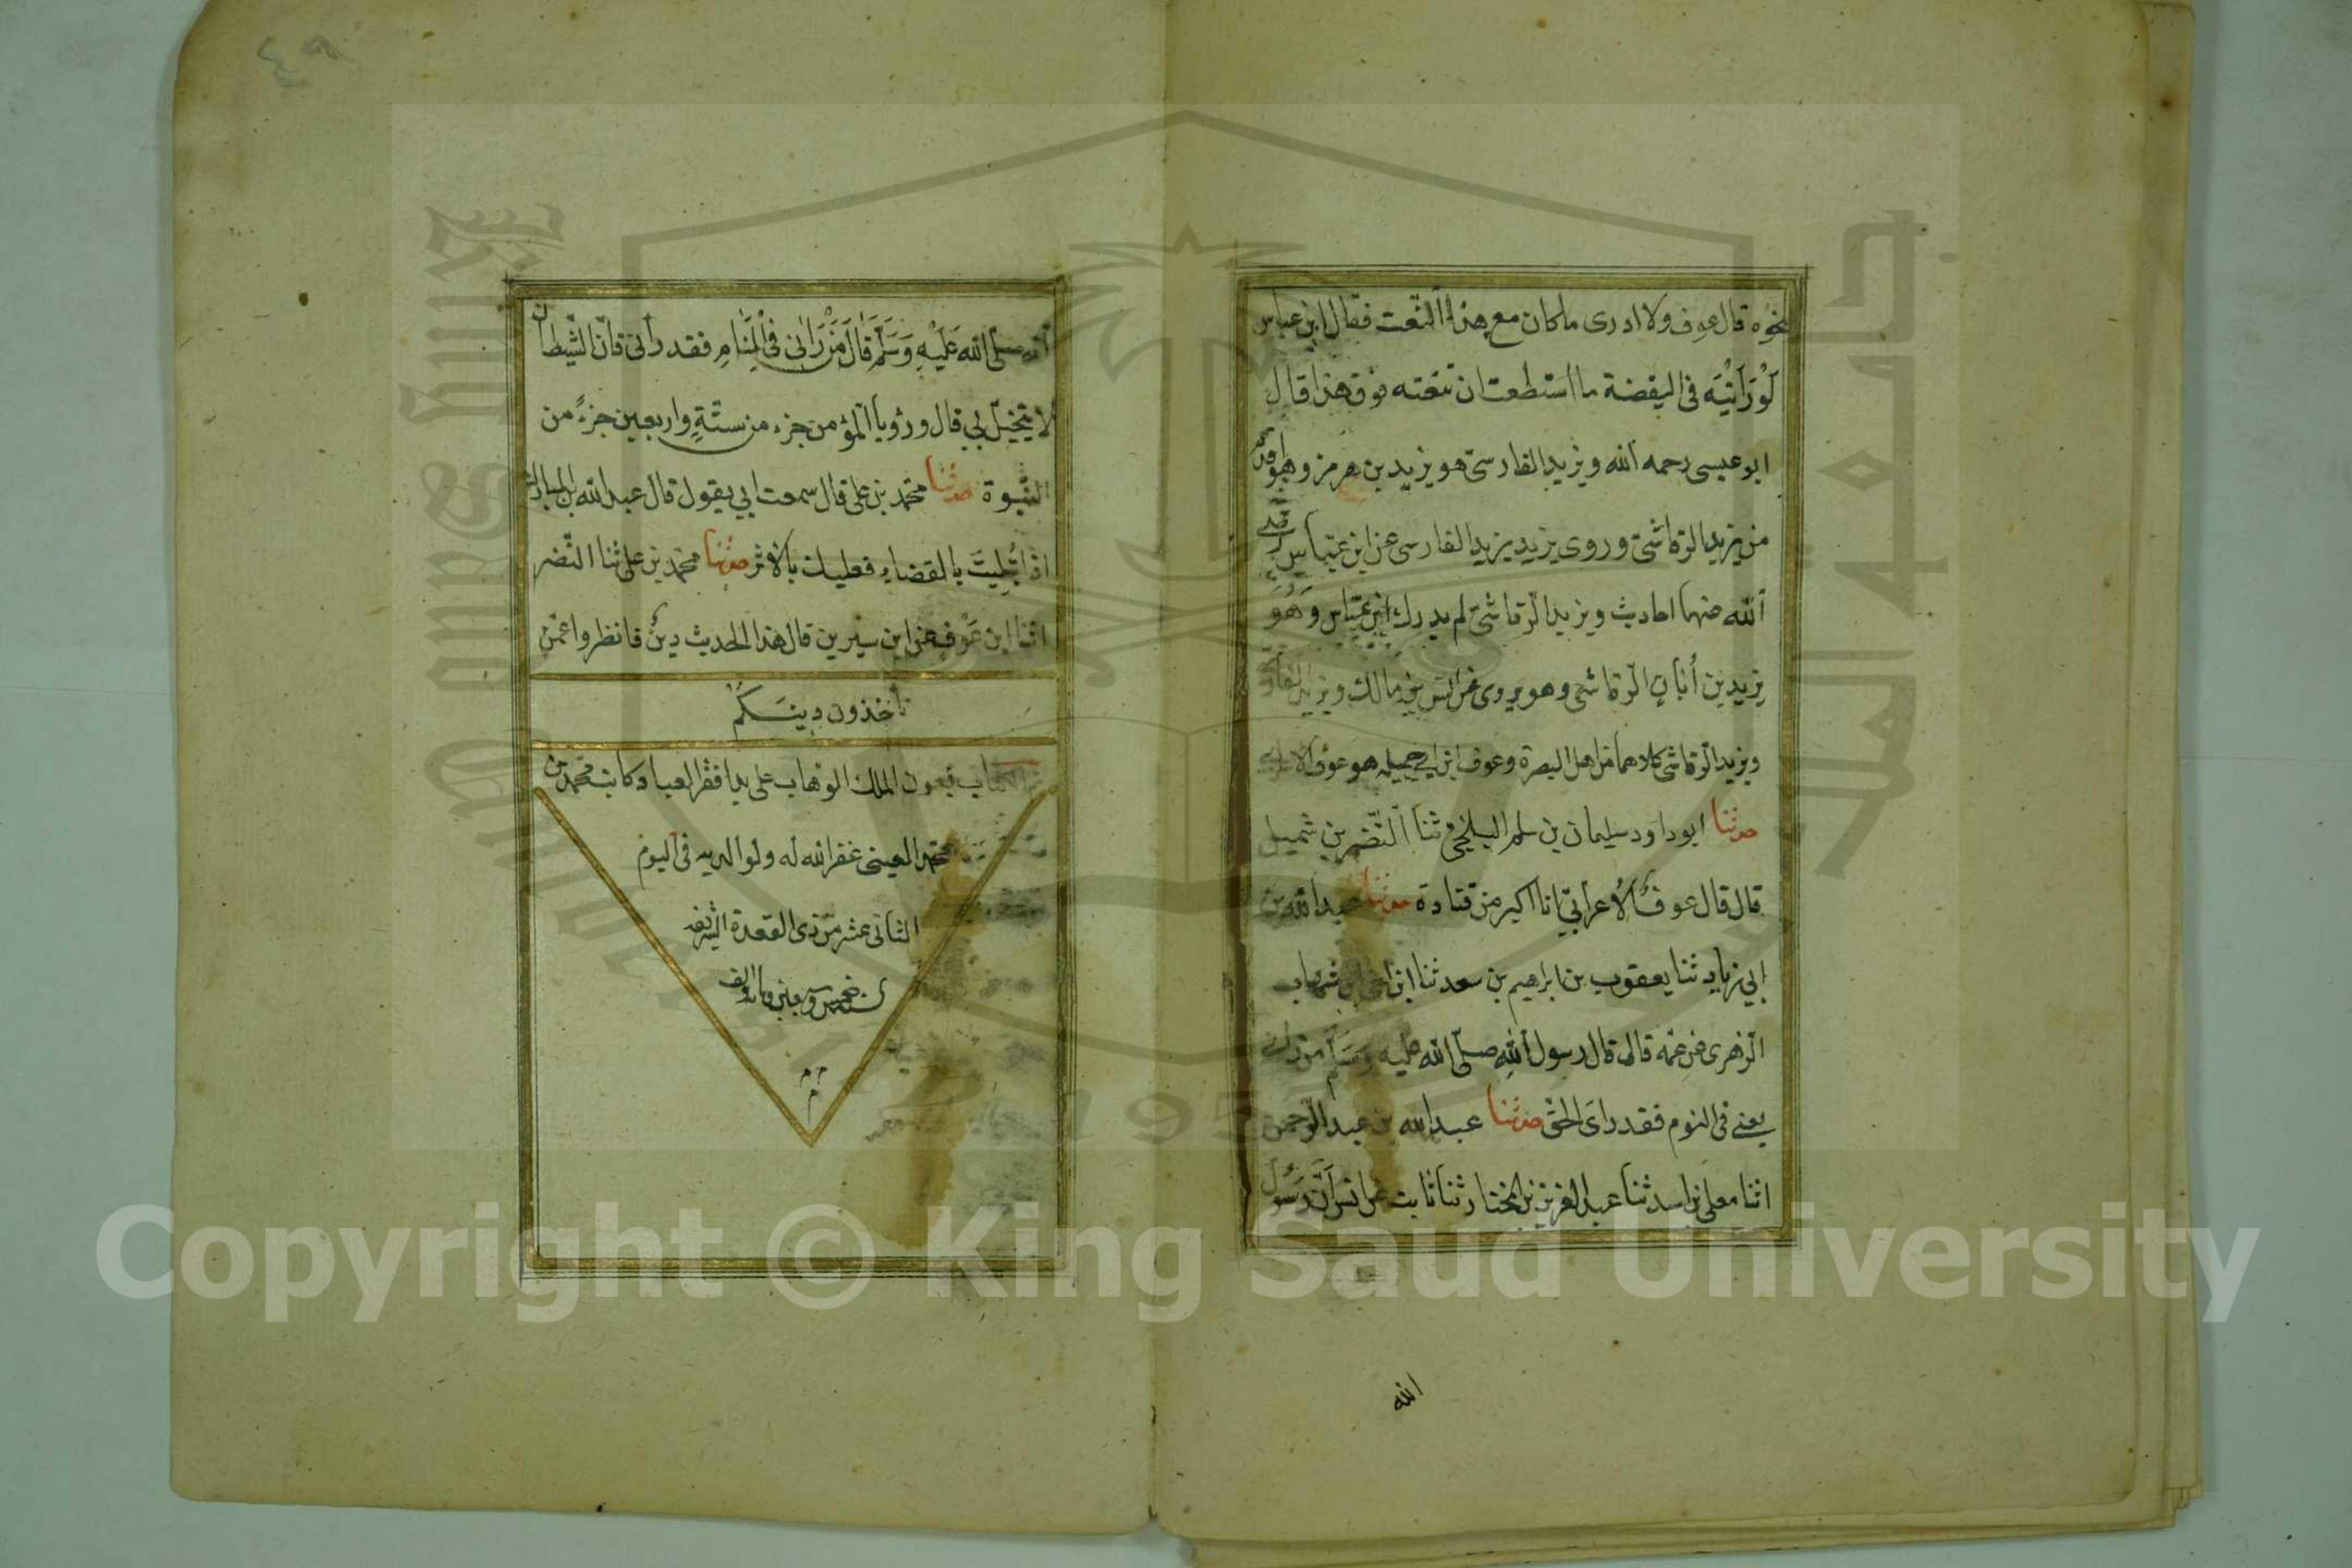 نحوه قال عوف ولا ادرى ما كان مع هذا النّعت فقال ابن عباس
لَوْ رَاَيْتَه فى اليقضة ما استطعت ان تنعته فوق هذا قال
ابو عيسى رحمه الله ويزيد الفارسىّ هو يزيد بن هرمز وهو اقدم
من يزيد الرّقاشىّ وروى يزيد يزيد الفارسى عن ابن عبّاس رضى
الله عنهما احاديث ويزيد الرّقاشىّ لم يدرك ابن عبّاس وَهُوَ
يزيد بن أبان الرّقاشى وهو يروى عن انس بن مالك ويزيد الفارسى
ويزيد الرّقاشى كلاهما من اهل البصرة وعوف ابن ابى جميله هو عوف الاعرابى
حدثنا ابو داود سليمان بن سلم البلخىّ ثنا النّضر بن شميل
قال قال عوف الأعرابىّ انا اكبر من قتادة حدثنا عبد الله بن
ابى زياد ثنا يعقوب بن ابراهيم بن سعد ثنا ابن اخى ابن شهاب
الزهرى عن عمّه قال قال رسول الله صلّى الله عليه وسلم من رانى
يعنى فى النوم فقد راى الحقّ حدثنا عبد الله بن عبد الرّحمن
اثنا معلى بن اسد ثنا عبد العزيز بن المختار ثنا ثابت عن انس انّ رسول
الله
٤٩
الله صلى الله عَلَيْهِ وَسَلَّمَ قَالَ مَنْ رَانى فى الْمَنَامِ فقد رأنى فانّ الشّيطان
لا يتخيّل بى قال ورؤيا المؤمن جزء من ستّةٍ واربعين جزءً من
النّبوة حدثنا محمّد بن على قال سمعت ابى يقول قال عبد الله بن المبارك
اذا ابْتُلِيتَ بالقضاء فعليك بالاثر حدثنا محمّد بن على ثنا النّضر
اثنا ابن عَوْف عن ابن سيرين قال هذا الحديث دينٌ فانظروا عمّن
تأخذون دينَكُمْ
تم الكتاب بعون الملك الوهاب على يد افقر العباد كاتبه محمّد بن
محمّد العينى غفر الله له ولوالديه فى اليوم
الثانى عشر من ذى القعدة الشريفه
م م
م
Copyright © King Saud University
1957